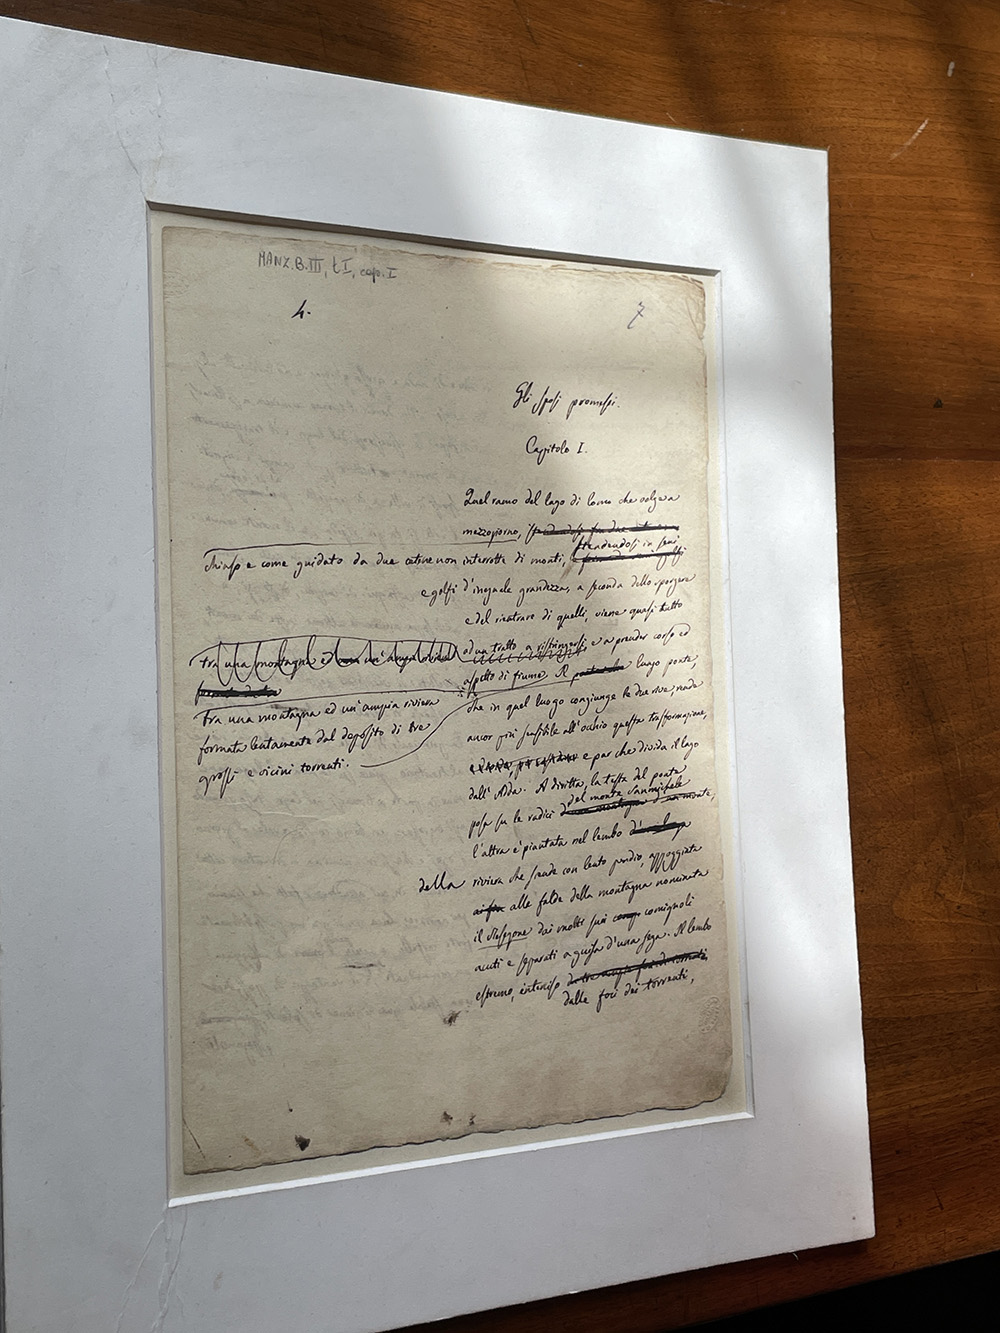 MANZ.B.III, t I, cap. I
4.
7
Gli sposi promessi.
Capitolo I.
Quel ramo del lago di Como che volge a
mezzogiorno,
stendendosi in seni
chiuso e come guidato da due catene non interrotte di monti,
e golfi d'ineguale grandezza, a seconda dello sporgere
e del rientrare di quelli, viene quasi tutto
ad un tratto a ristringersi e a prender corso ed
tra una montagna ed un'ampia riviera
aspetto di fiume. Il luogo ponte,
tra una montagna ed un'ampia riviera
formata lentamente dal deposito di tre
grossi e vicini torrenti.
che in quel luogo congiunge le due rive, rende
ancor più sensibile all'occhio questa trasformazione,
e par che divida il lago
dall'Adda. A diritta, la testa del ponte
del monte Sanmichele
posa su le radici d'una montagna d'un monte,
l'altra è piantata nel lembo
della riviera che scende con lento pendio, appoggiata
alle falde della montagna nominata
il Resegone dai molti suoi comignoli
acuti e separati a guisa d'una sega. Il lembo
estremo, interciso
dalle foci dei torrenti,